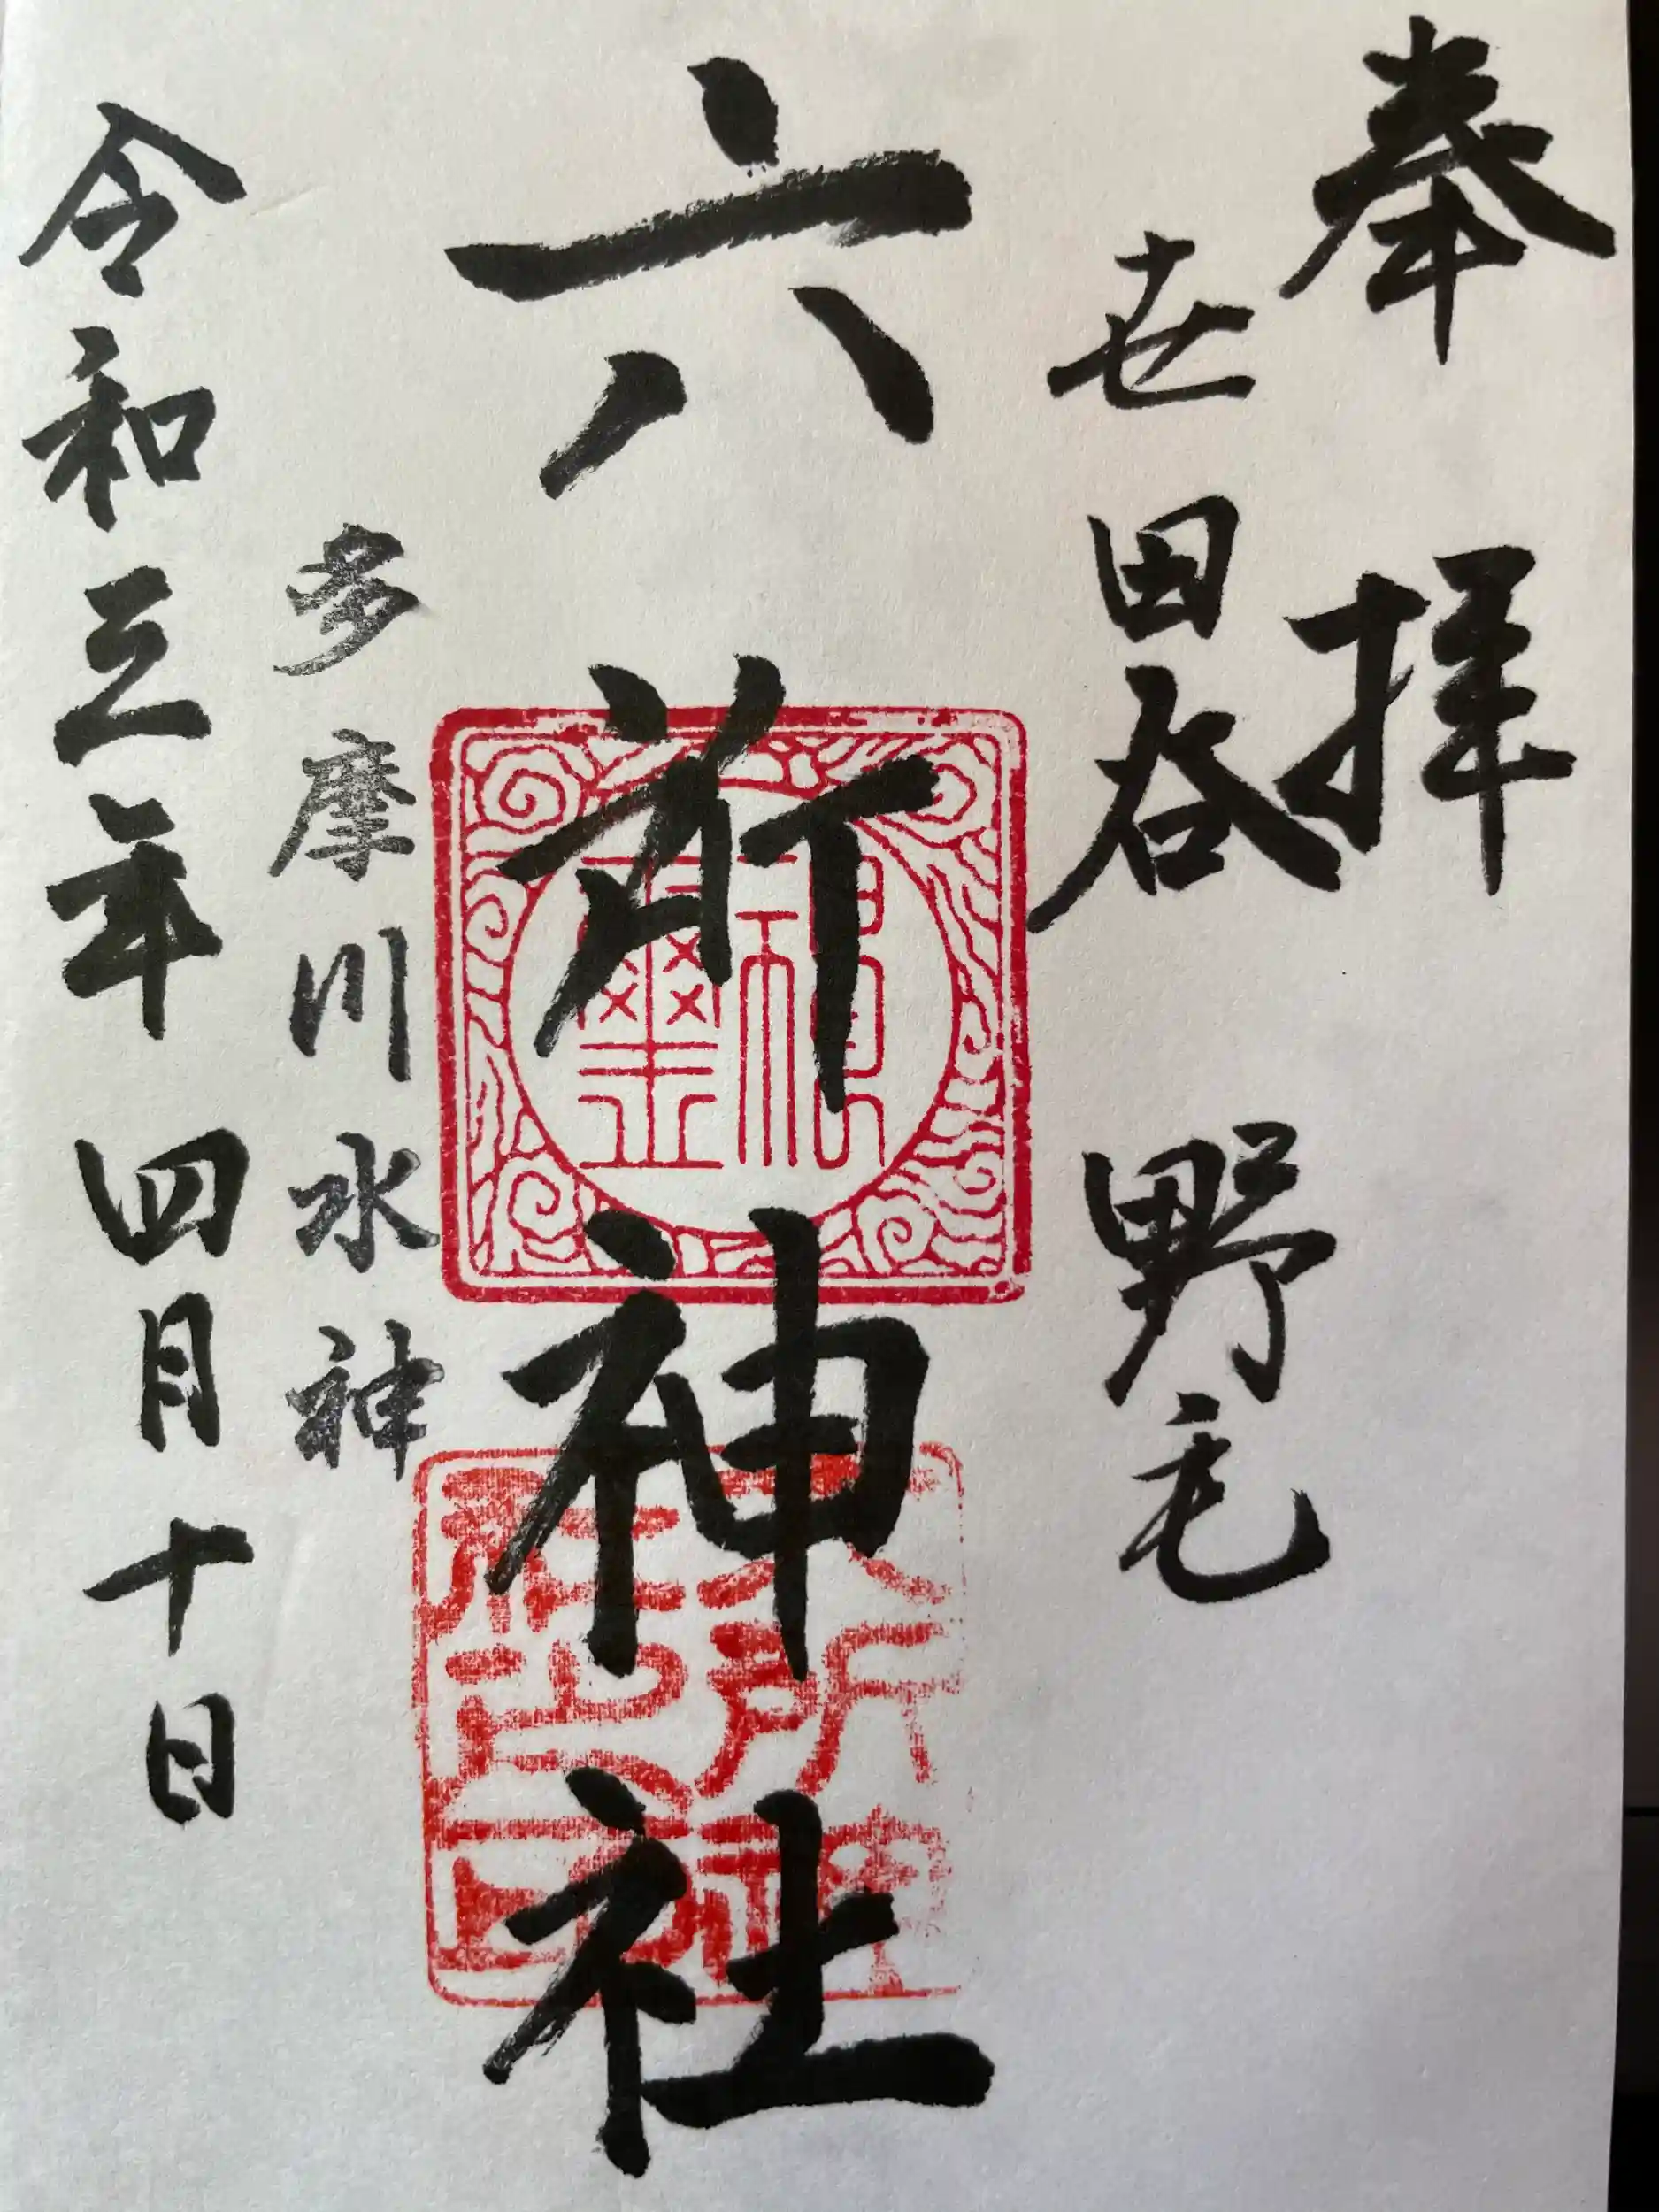 奉拝
世田谷 野毛
六所神社
多摩川水神
令和三年 四月十日